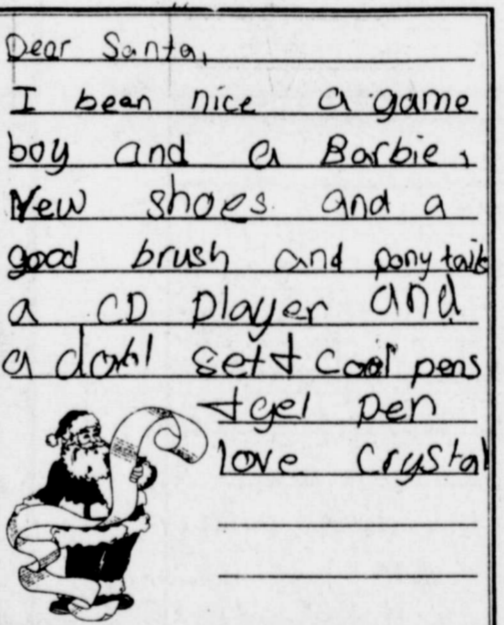 Dear Santa,
I bean nice a game
boy and a Barbie,
New shoes and a
good brush and pony tails
a CD player and
a sett & cool pens
& gel pen
love Crystal